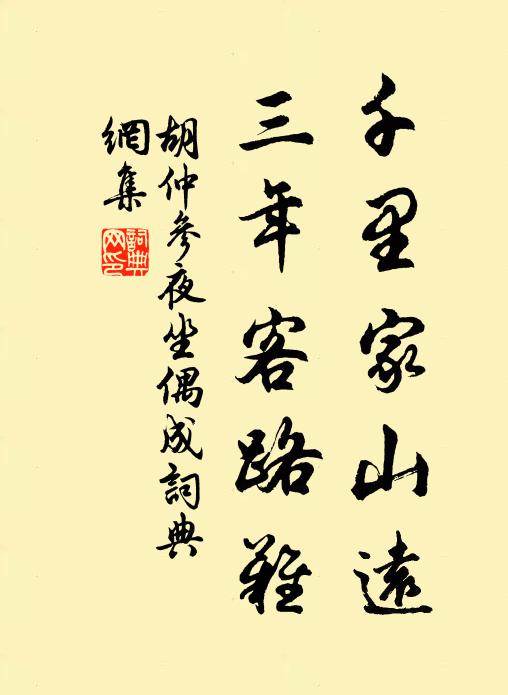 千里家山遠
三年客路難
胡仲參夜坐偶成詞典
網集
詞典網印